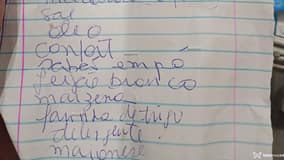 sal
oleo
confort
Saban em pó
feijão branco
maizena
farinha de trigo
detergente.
maionese